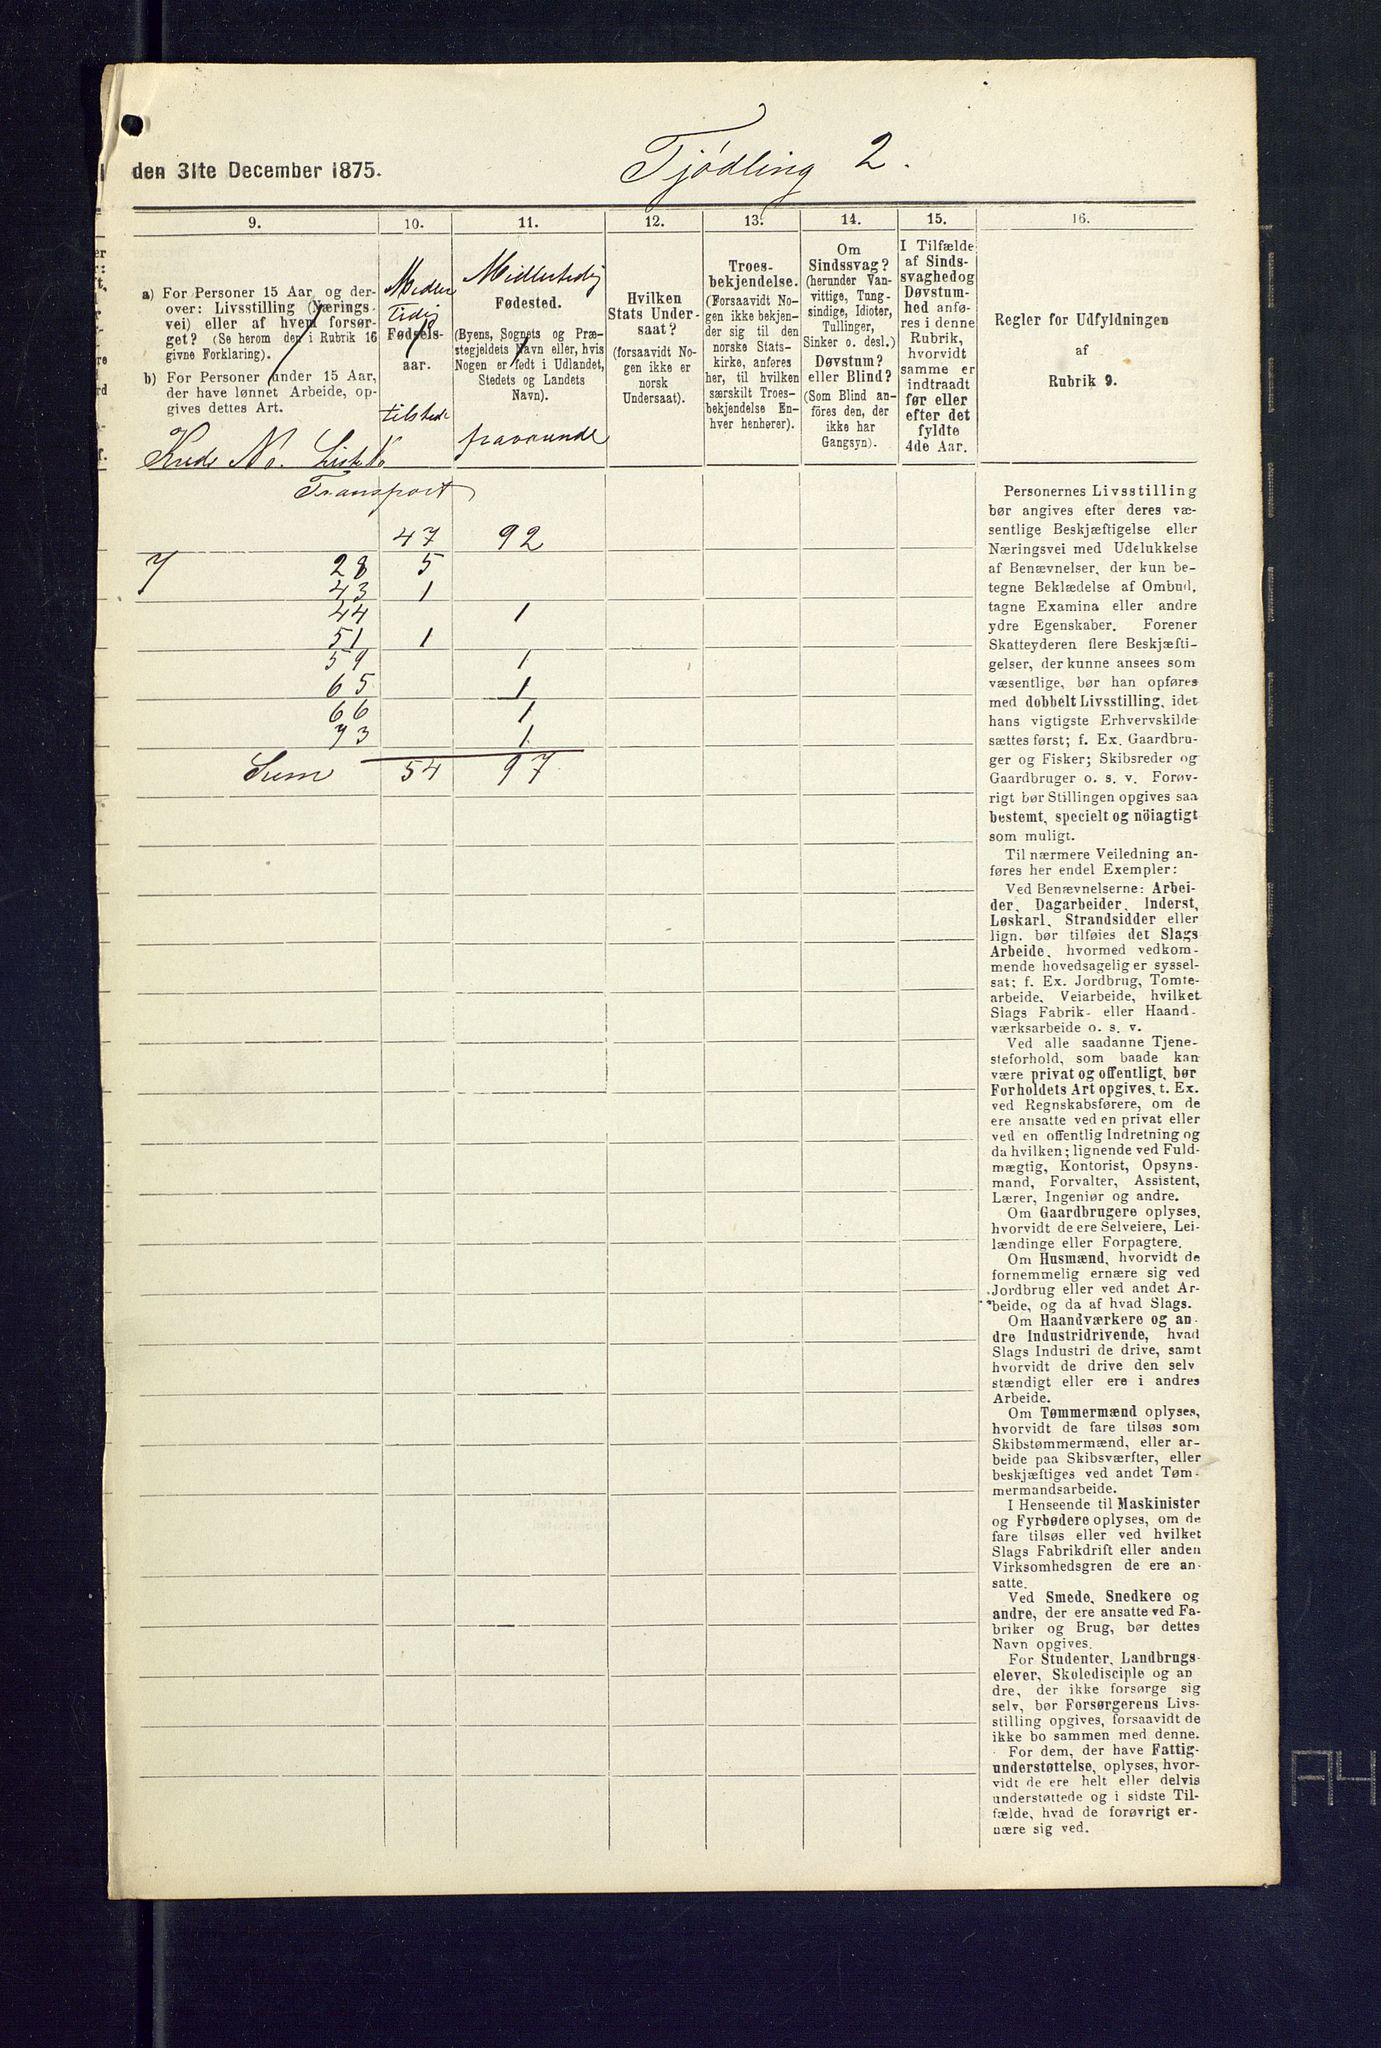 den 31te December 1875.
Tjødling 2.
9.
a) For Personer 15 Aar og der-
over: Livsstilling (Nærings-
vei) eller af hvem forsør-
get? (Se herom den i Rubrik 16
givne Forklaring).
b) For Personer under 15 Aar,
der have lønnet Arbeide, op-
gives dettes Art.
Kreds No. Liste No
10.
Midler
tidig
Fødsels-
aar.
tilstede
11.
Midlertidig
Fødested.
(Byens, Sognets og Præ-
stegjeldets Navn eller, hvis
Nogen er født i Udlandet,
Stedets og Landets
Navn).
fraværende
12.
Hvilken
Stats Under-
saat?
(forsaavidt No-
gen ikke er
norsk
Undersaat).
13.
Troes-
bekjendelse.
(Forsaavidt No-
gen ikke bekjen-
der sig til den
norske Stats-
kirke, anføres
her, til hvilken
særskilt Troes-
bekjendelse En-
hver henhører).
14.
Om
Sindssvag?
(herunder Van-
vittige, Tung-
sindige, Idioter,
Tullinger,
Sinker o. desl.)
Døvstum?
eller Blind?
(Som Blind an-
føres den, der
ikke har
Gangsyn).
15.
I Tilfælde
af Sinds-
svaghed og
Døvstum-
hed anfø-
res i denne
Rubrik,
hvorvidt
samme er
indtraadt
før eller
efter det
fyldte
4de Aar.
16.
Regler for Udfyldningen
af
Rubrik 9.
Transport
47 92
7 28 5
43 1
44 1
51 1
59 1
65 1
66 1
73 1
Sum 54 97
Personernes Livsstilling
bør angives efter deres væ-
sentlige Beskjæftigelse eller
Næringsvei med Udelukkelse
af Benævnelser, der kun be-
tegne Beklædelse af Ombud,
tagne Examina eller andre
ydre Egenskaber. Forener
Skatteyderen flere Beskjæfti-
gelser, der kunne ansees som
væsentlige, bør han opføres
med dobbelt Livsstilling, idet
hans vigtigste Erhvervskilde
sættes først; f. Ex. Gaardbru-
ger og Fisker; Skibsreder og
Gaardbruger o. s. v. Forøv-
rigt bør Stillingen opgives saa
bestemt, specielt og nöiagtigt
som muligt.
Til nærmere Veiledning an-
føres her endel Exempler:
Ved Benævnelserne: Arbei-
der, Dagarbeider, Inderst,
Løskarl, Strandsidder eller
lign. bør tilføies det Slags
Arbeide, hvormed vedkom-
mende hovedsagelig er syssel-
sat; f. Ex. Jordbrug, Tomte-
arbeide, Veiarbeide, hvilket
Slags Fabrik- eller Haand-
værksarbeide o. s. v.
Ved alle saadanne Tjene-
steforhold, som baade kan
være privat og offentligt, bør
Forholdets Art opgives, t. Ex.
ved Regnskabsførere, om de
ere ansatte ved en privat eller
ved en offentlig Indretning og
da hvilken; lignende ved Fuld-
mægtig, Kontorist, Opsyns-
mand, Forvalter, Assistent,
Lærer, Ingeniør og andre.
Om Gaardbrugere oplyses,
hvorvidt de ere Selveiere, Lei-
lændinge eller Forpagtere.
Om Husmænd, hvorvidt de
fornemmelig ernære sig ved
Jordbrug eller ved andet Ar-
beide, og da af hvad Slags.
Om Haandværkere og an-
dre Industridrivende, hvad
Slags Industri de drive, samt
hvorvidt de drive den selv
stændigt eller ere i andres
Arbeide.
Om Tømmermænd oplyses,
hvorvidt de fare tilsøs som
Skibstømmermænd, eller ar-
beide paa Skibsværfter, eller
beskjæftiges ved andet Tøm-
mermandsarbeide.
I Henseende til Maskinister
og Fyrbødere oplyses, om de
fare tilsøs eller ved hvilket
Slags Fabrikdrift eller anden
Virksomhedsgren de ere an-
satte.
Ved Smede, Snedkere og
andre, der ere ansatte ved Fa-
briker og Brug, bør dettes
Navn opgives.
For Studenter, Landbrugs-
elever, Skoledisciple og an-
dre, der ikke forsørge sig
selv, bør Forsørgerens Livs-
stilling opgives, forsaavidt de
ikke bo sammen med denne.
For dem, der have Fattig-
understøttelse, oplyses, hvor-
vidt de ere helt eller delvis
understøttede og i sidste Til-
fælde, hvad de forøvrigt er-
nære sig ved.
A4